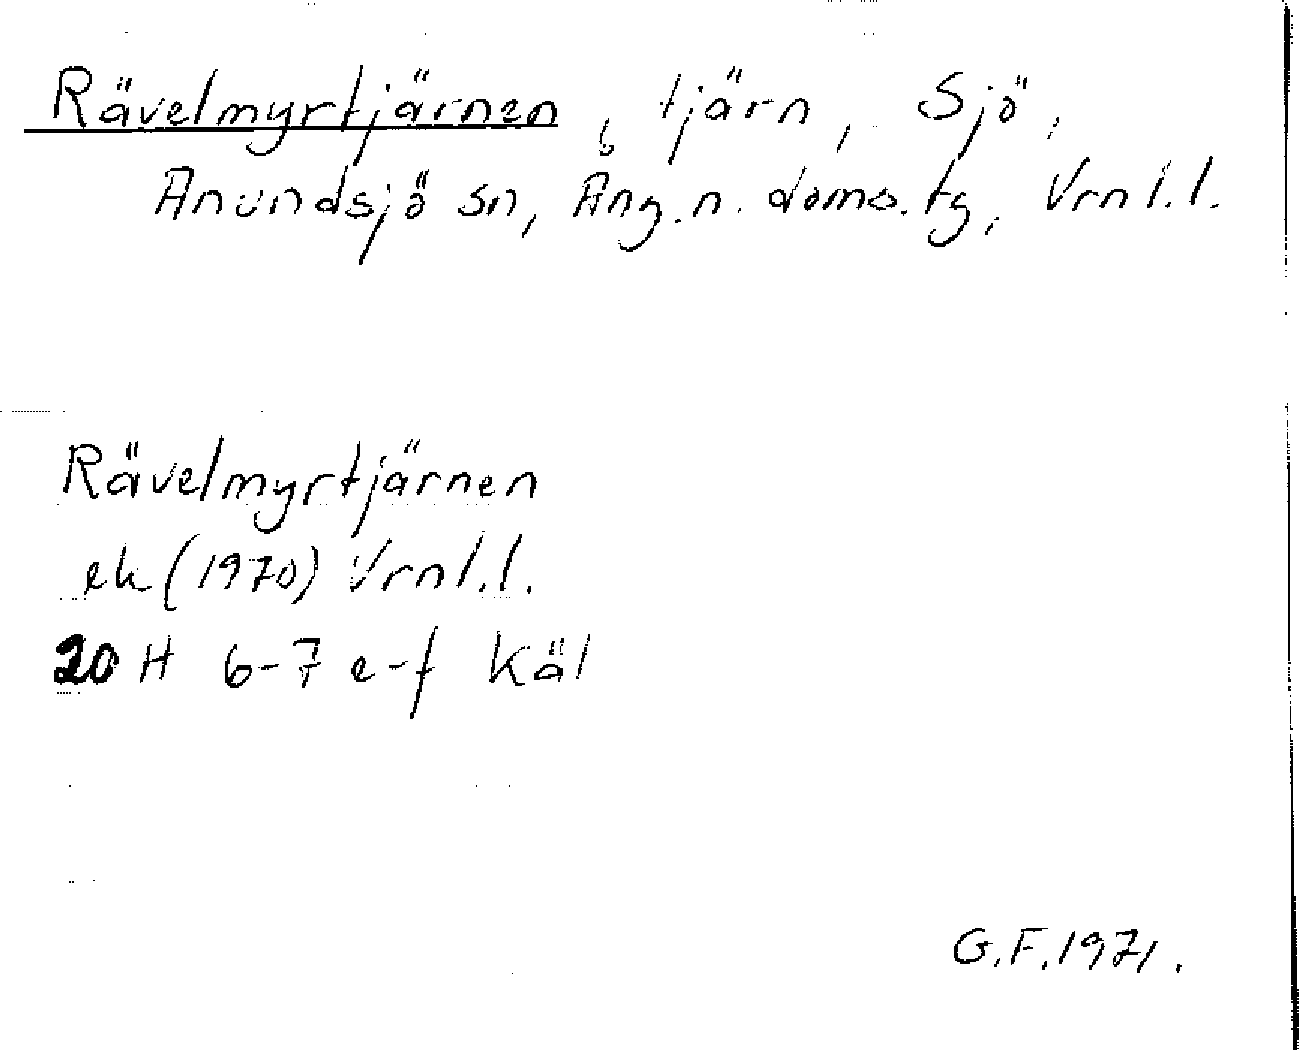 Rävelmyrtjärnen, tjärn, Sjö,
Anundsjö sn, Ång.n. doms.tg, Vrnl.l.
Rävelmyrtjärnen
ek (1970) Vrnl.l.
20 H 6-7 e-f Käl
G.F.1971.